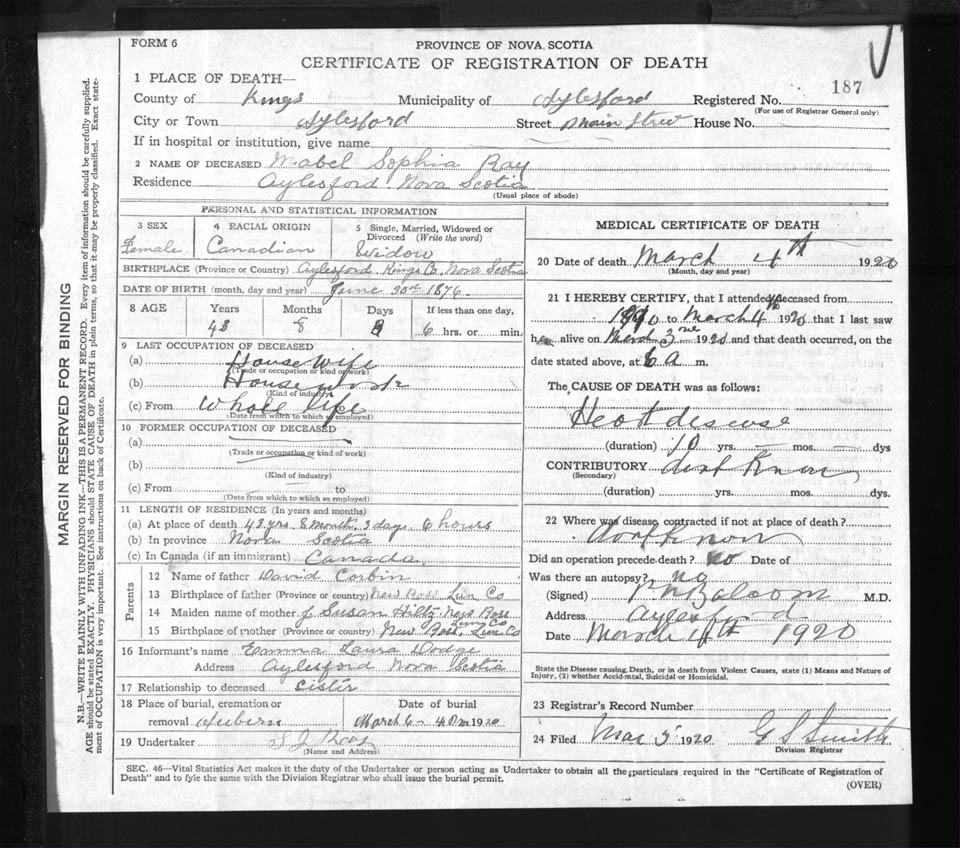 FORM 6
PROVINCE OF NOVA SCOTIA
CERTIFICATE OF REGISTRATION OF DEATH
187
1 PLACE OF DEATH—
County of Kings Municipality of Aylesford Registered No.
(For use of Registrar General only)
City or Town Aylesford Street Main Street House No.
If in hospital or institution, give name
2 NAME OF DECEASED Mabel Sophia Ray
Residence Aylesford Nova Scotia
(Usual place of abode)
PERSONAL AND STATISTICAL INFORMATION
3 SEX 4 RACIAL ORIGIN 5 Single, Married, Widowed or Divorced (Write the word)
Female Canadian Widow
BIRTHPLACE (Province or Country) Aylesford Kings Co. Nova Scotia
DATE OF BIRTH (month, day and year) June 30th 1876
8 AGE Years Months Days If less than one day,
43 8 6 hrs. or min.
9 LAST OCCUPATION OF DECEASED
(a) House wife
(Trade or occupation or kind of work)
(b) House work
(Kind of industry)
(c) From Whole life
(Date from which to which so employed)
10 FORMER OCCUPATION OF DECEASED
(a)
(Trade or occupation or kind of work)
(b)
(Kind of industry)
(c) From to
(Date from which to which so employed)
11 LENGTH OF RESIDENCE (In years and months)
(a) At place of death 43 yrs 8 month 3 days 6 hours
(b) In province Nova Scotia
(c) In Canada (if an immigrant) Canada
Parents
12 Name of father David Corbin
13 Birthplace of father (Province or country) New Ross Lun Co
14 Maiden name of mother J Susan Hiltz New Ross
Lun Co
15 Birthplace of mother (Province or country) New Ross, Lun Co
16 Informant's name Emma Laura Dodge
Address Aylesford Nova Scotia
17 Relationship to deceased sister
18 Place of burial, cremation or removal Auburn
Date of burial
March 6 - 4 Pm 1920
19 Undertaker S J Ray
(Name and Address)
MEDICAL CERTIFICATE OF DEATH
20 Date of death March 4th 1920
(Month, day and year)
21 I HEREBY CERTIFY, that I attended deceased from
1910 to March 4th 1920 that I last saw
h alive on March 3 1920 and that death occurred, on the
date stated above, at 6 a m.
The CAUSE OF DEATH was as follows:
Heart disease
(duration) 10 yrs. mos. dys
CONTRIBUTORY dont Know
(Secondary)
(duration) yrs. mos. dys.
22 Where was disease contracted if not at place of death?
dont Know
Did an operation precede death? no Date of
Was there an autopsy? no
(Signed) Balcom M.D.
Address Aylesford
Date March 4th 1920
State the Disease causing Death, or in death from Violent Causes, state (1) Means and Nature of
Injury, (2) whether Accidental, Suicidal or Homicidal.
23 Registrar's Record Number
24 Filed Mar 5 1920 G S Smith
Division Registrar
SEC. 46—Vital Statistics Act makes it the duty of the Undertaker or person acting as Undertaker to obtain all the particulars required in the "Certificate of Registration of
Death" and to fyle the same with the Division Registrar who shall issue the burial permit.
(OVER)
MARGIN RESERVED FOR BINDING
N.B.—WRITE PLAINLY WITH UNFADING INK—THIS IS A PERMANENT RECORD. Every item of information should be carefully supplied.
AGE should be stated EXACTLY. PHYSICIANS should STATE CAUSE OF DEATH in plain terms, so that it may be properly classified. Exact state-
ment of OCCUPATION is very important. See instructions on back of Certificate.